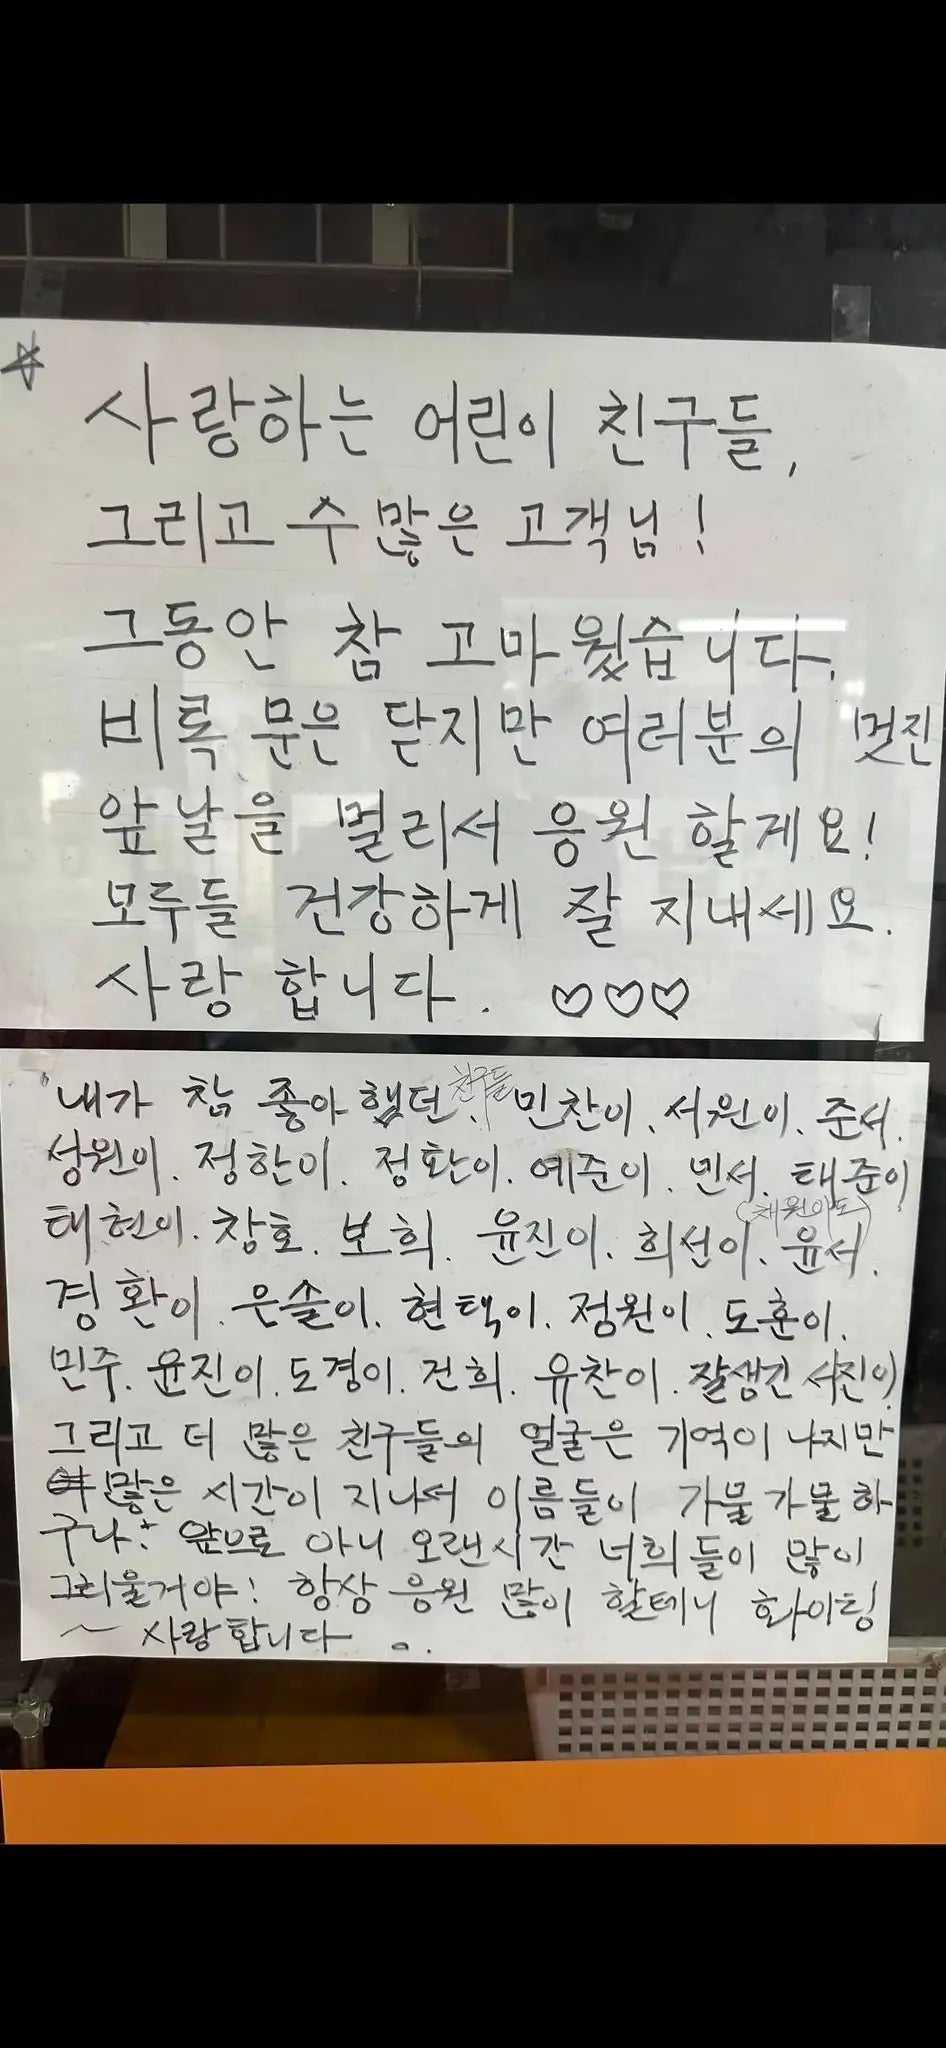 사랑하는 어린이 친구들,
그리고 수많은 고객님!
그동안 참 고마웠습니다.
비록 문은 닫지만 여러분의 멋진
앞날을 멀리서 응원 할게요!
모두들 건강하게 잘 지내세요.
사랑 합니다. ♡♡♡
내가 참 좋아했던 친구들 민찬이. 서원이. 준서.
성원이. 정한이. 정환이. 예준이. 민서. 태준이
태현이. 창호. 보희. 윤진이. 희선이. 윤서. (채원이도)
경환이. 은솔이. 현택이. 정원이. 도훈이.
민주. 윤진이. 도경이. 건희. 유찬이. 잘생긴 서진이
그리고 더 많은 친구들의 얼굴은 기억이 나지만
많은 시간이 지나서 이름들이 가물가물하
구나! 앞으로 아니 오랜시간 너희들이 많이
그리울거야! 항상 응원 많이 할테니 화이팅
~ 사랑합니다